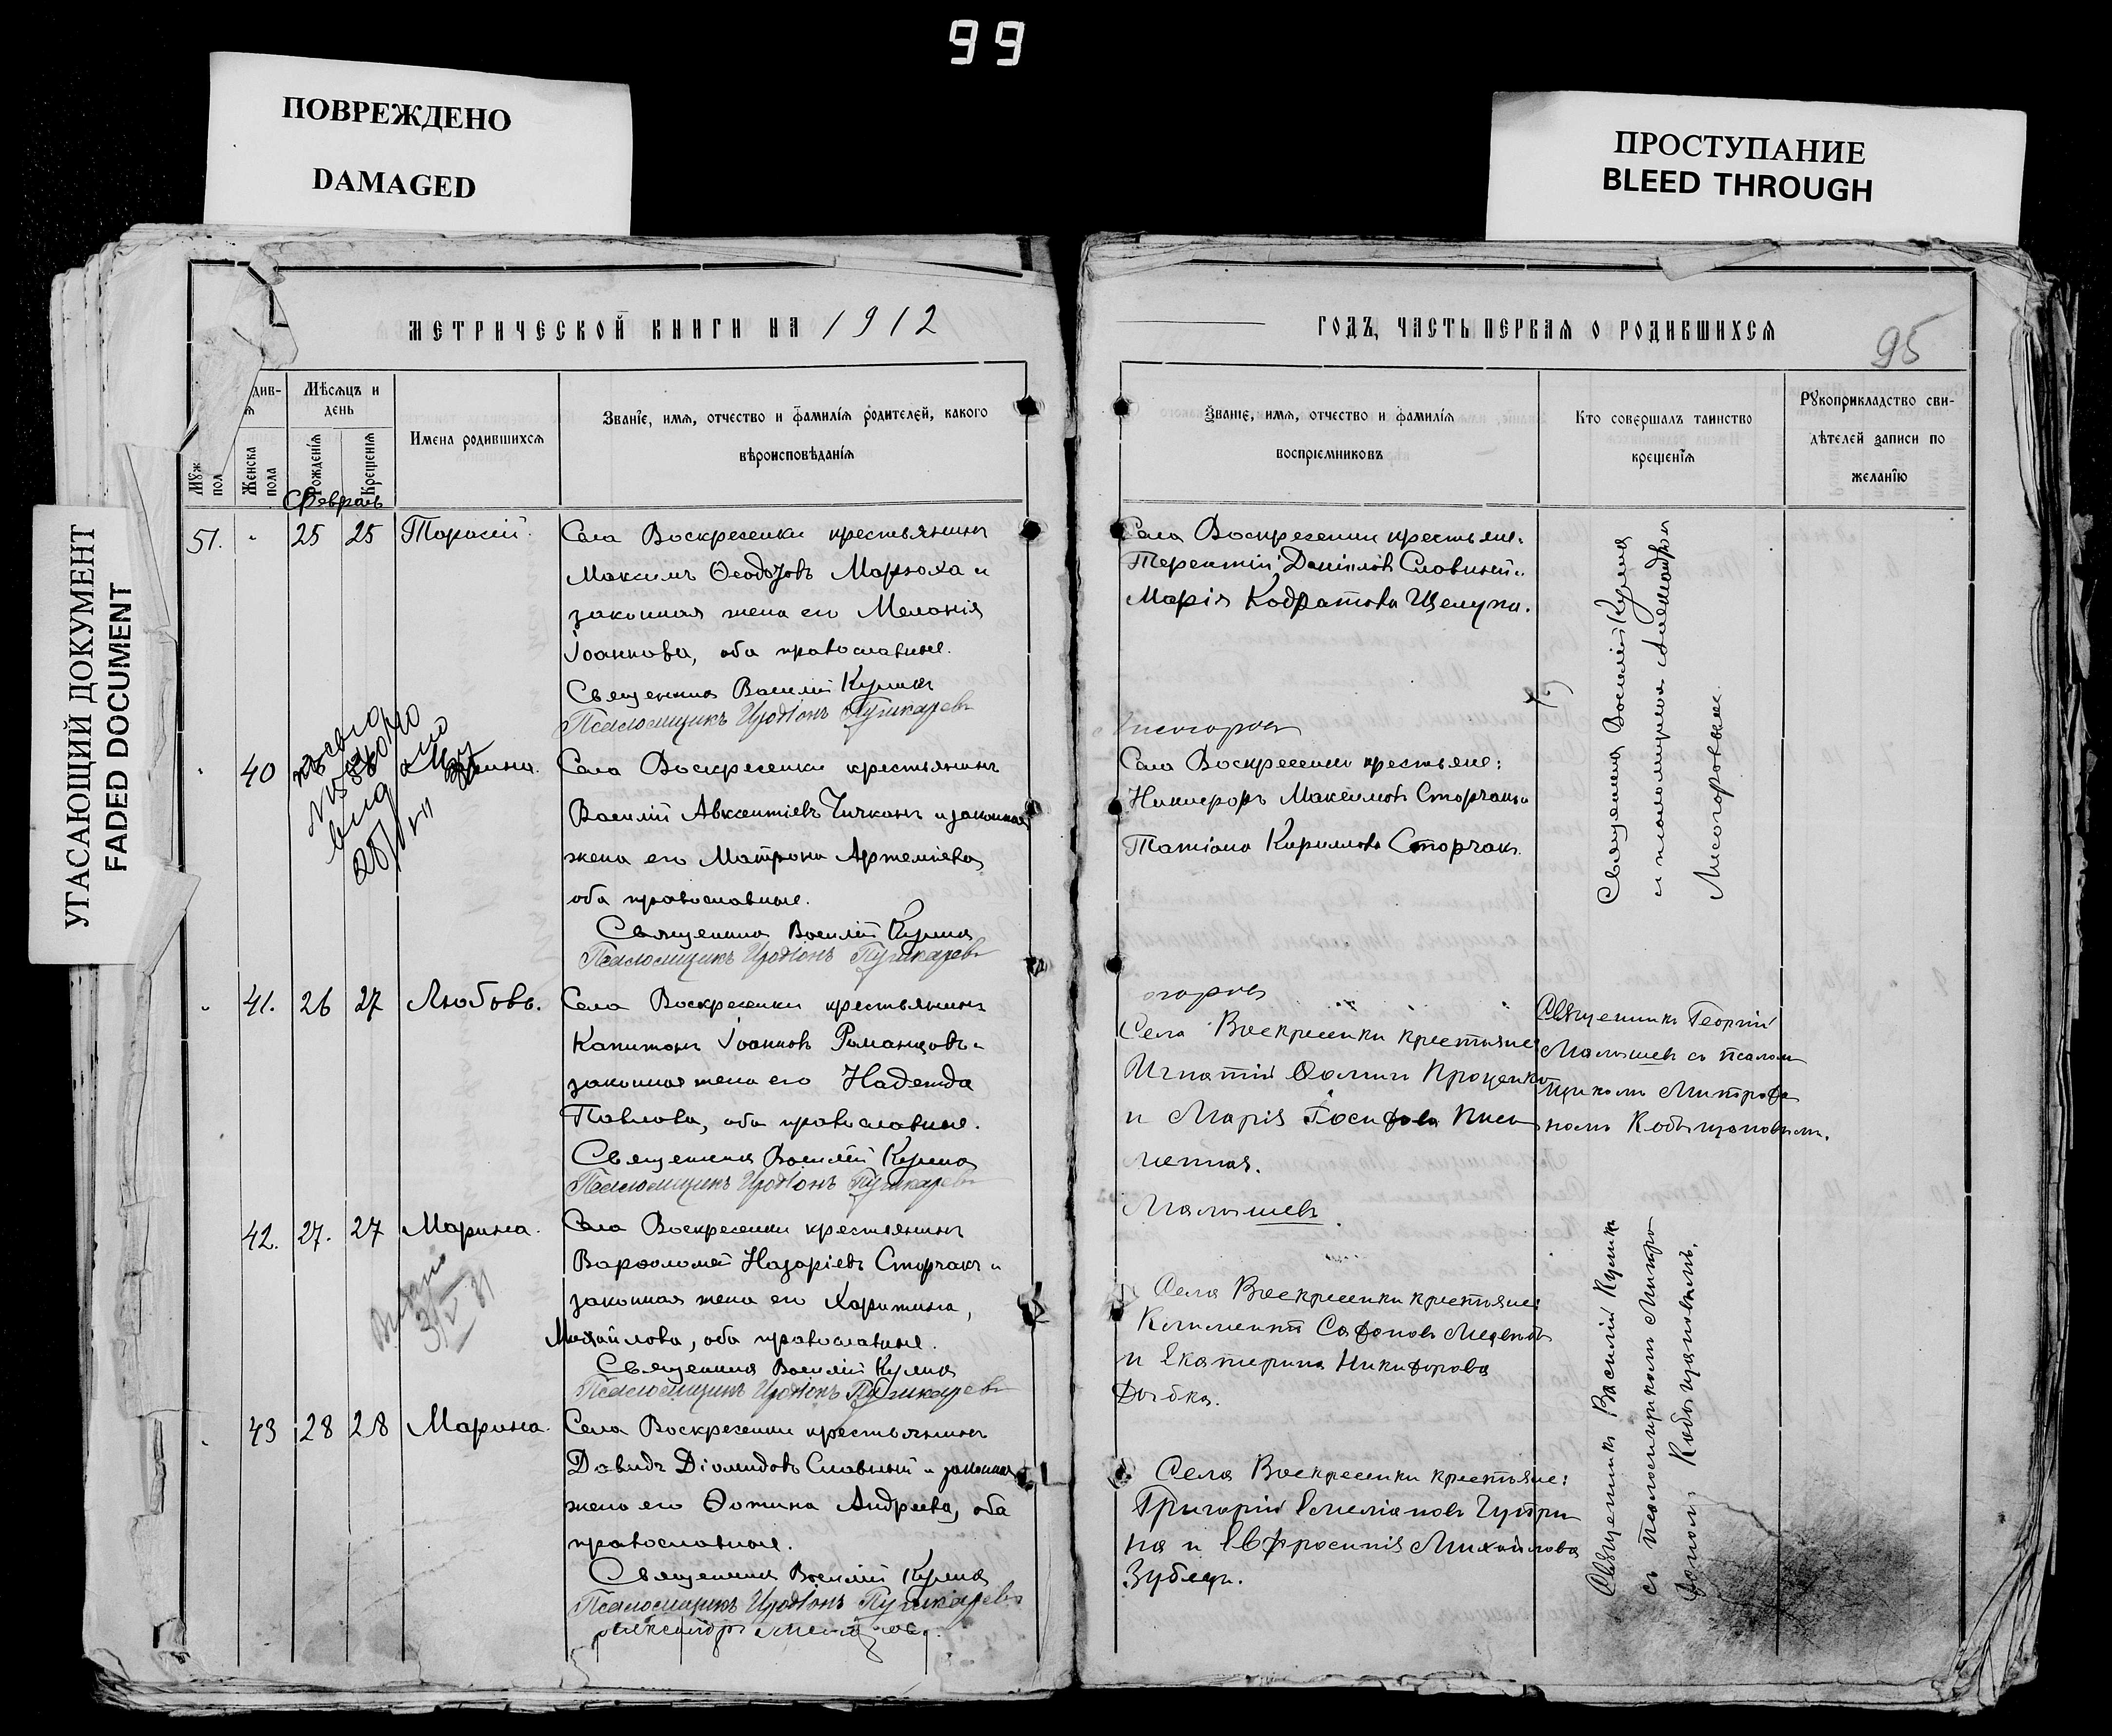 99
ПОВРЕЖДЕНО
DAMAGED
ПРОСТУПАНИЕ
BLEED THROUGH
УГАСАЮЩИЙ ДОКУМЕНТ
FADED DOCUMENT
МЕТРИЧЕСКОЙ КНИГИ НА 1912
ГОДЪ, ЧАСТЬ ПЕРВАЯ О РОДИВШИХСЯ
95
Мѣсяцъ и
день
Женска
пола
Рожденія
Крещенія
Имена родившихся
Званіе, имя, отчество и фамилія родителей, какого
вѣроисповѣданія
Званіе, имя, отчество и фамилія
воспріемниковъ
Кто совершалъ таинство
крещенія
Рукоприкладство сви-
дѣтелей записи по
желанію
Февраль
51. " 25 25 Тарасій.
Села Воскресенки крестьянинъ
Максимъ Ѳеодозовъ Марюха и
законная жена его Меланія
Іоаннова, оба православные.
Священникъ Василій Кулика
Псаломщикъ Иродіонъ Пушкаревъ
Села Воскресенки крестьяне:
Терентій Даніиловъ Славный и
Марія Кодратова Щелупа.
" 40
28/VII
Села Воскресенки крестьянинъ
Василій Авксентіевъ Чичканъ и законная
жена его Матрона Артеміева,
оба православные.
Священникъ Василій Кулика
Псаломщикъ Иродіонъ Пушкаревъ
Села Воскресенки крестьяне:
Никифоръ Максимовъ Сторчакъ и
Татіана Кирилова Сторчакъ.
Священникъ Василій Кулика
и псаломщикъ Александръ
Лисогоровымъ.
" 41. 26 27 Любовь.
Села Воскресенки крестьянинъ
Капитонъ Іоанновъ Романцовъ и
законная жена его Надежда
Павлова, оба православные.
Священникъ Василій Кулика
Псаломщикъ Иродіонъ Пушкаревъ
Села Воскресенки крестьяне
Игнатій Ѳоминъ Проценко
и Марія Іосифова Пись
менная.
Малышевъ
Священникъ Георгій
Малышевъ съ псалом
щикомъ Митрофа
номъ Кобыщановымъ.
42. 27. 27 Марина.
Села Воскресенки крестьянинъ
Варѳоломей Назаріевъ Сторчакъ и
законная жена его Харитина,
Михайлова, оба православные.
Священникъ Василій Кулика
Псаломщикъ Иродіонъ Пушкаревъ
Села Воскресенки крестьяне:
и Екатерина Никифорова
43 28 28 Марина.
Села Воскресенки крестьянинъ
Давидъ Діомидовъ Славный и законная
жена его Фотина Андреева, оба
православные.
Священникъ Василій Кулика
Псаломщикъ Иродіонъ Пушкаревъ
Села Воскресенки крестьяне:
Григорій Емеліановъ Чупри
на и Евфросинія Михайлова
Зублецъ.
Священникъ Василій Кулика
съ псаломщикомъ Митро
фаномъ Кобыщановымъ.